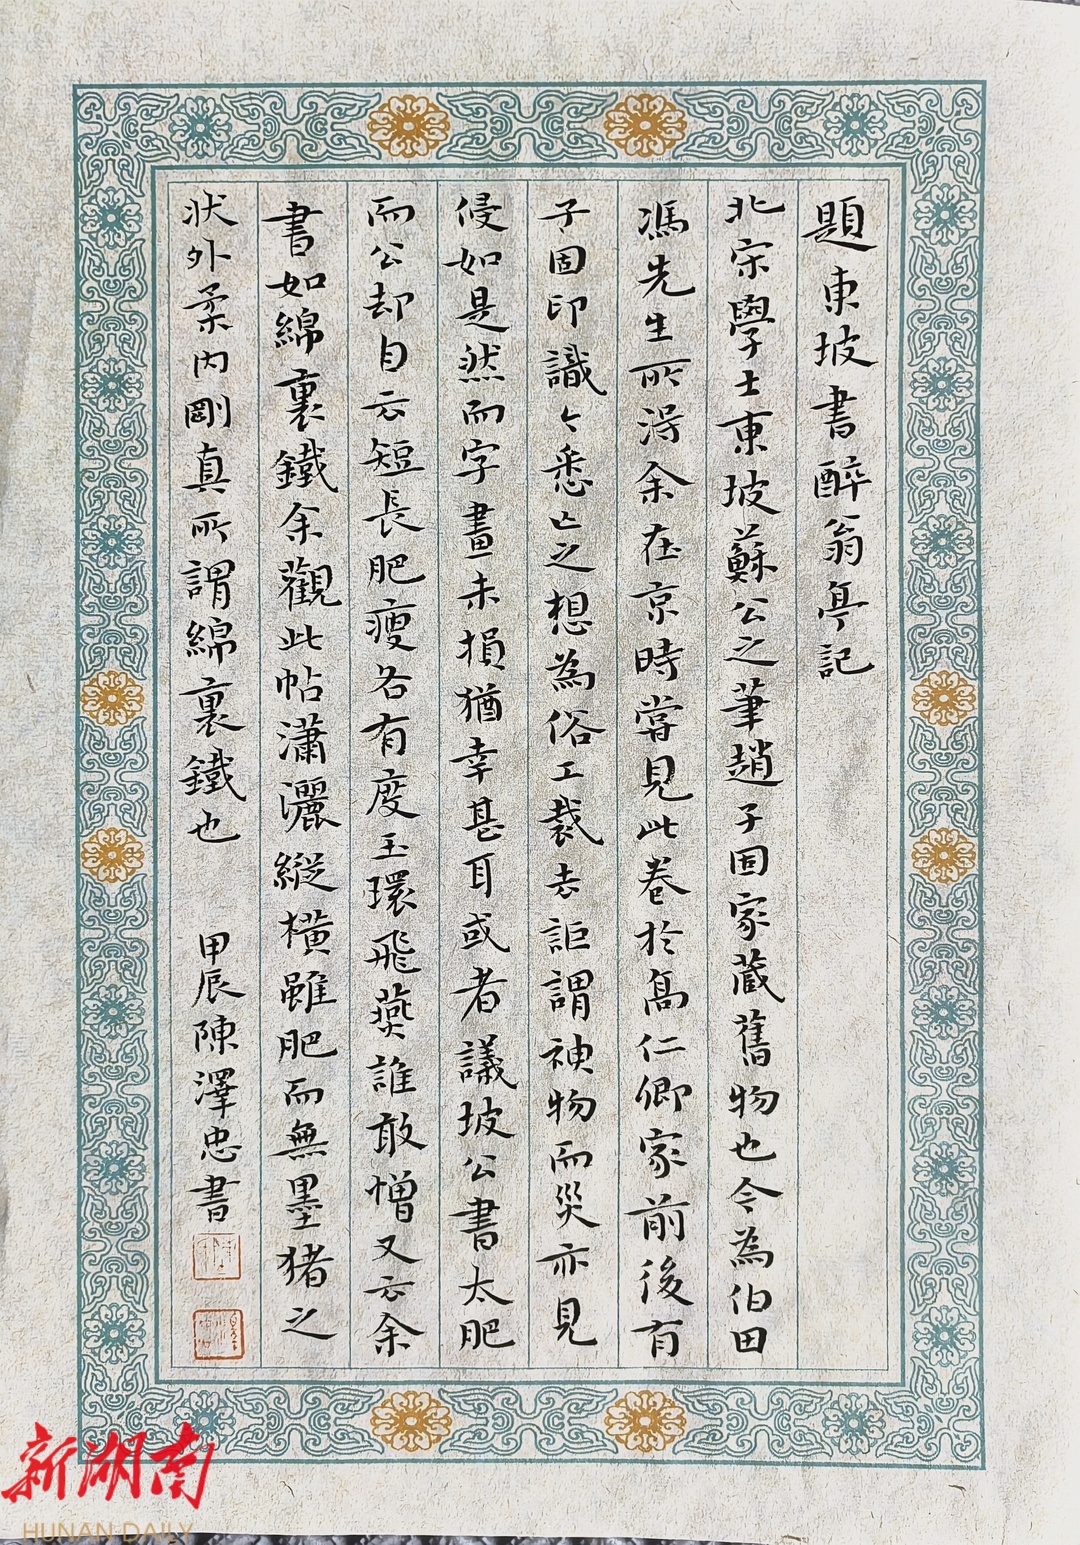 題東坡書醉翁亭記
北宋學士東坡蘇公之筆趙子固家藏舊物也今為伯田
馮先生所得余在京時嘗見此卷於高仁卿家前後有
子固印識今悉亡之想為俗工裁去詎謂神物而災亦見
侵如是然而字畫未損猶幸甚耳或者議坡公書太肥
而公却自云短長肥瘦各有度玉環飛燕誰敢憎又云余
書如綿裏鐵余觀此帖瀟灑縱橫雖肥而無墨猪之
狀外柔內剛真所謂綿裏鐵也 甲辰陳澤忠書
新湖南
HUNAN DAILY